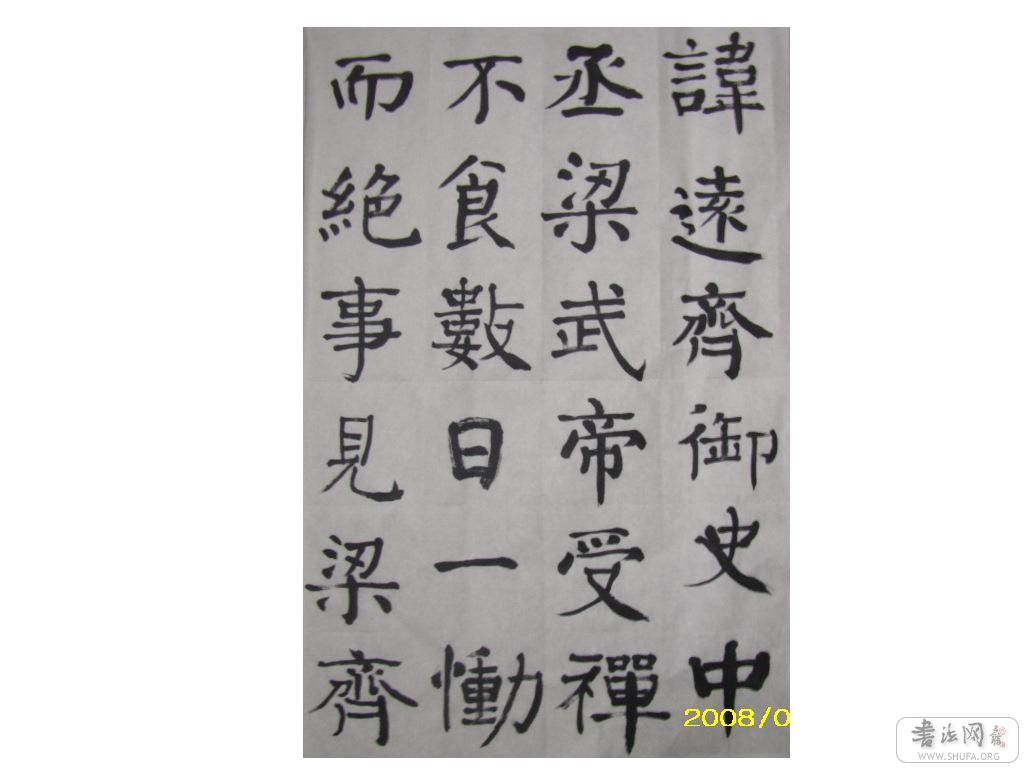 諱遠齊御史中
丞梁武帝受禪
不食數日一慟
而絕事見梁齊
2008/0
书法网
WWW.SHUFA.ORG